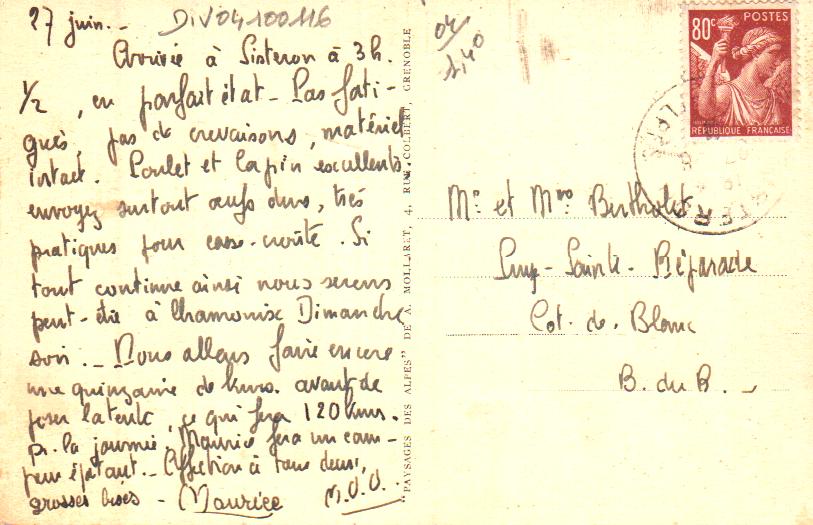 27 juin.-
DIV04100116
Arrivée à Sisteron à 3h.
1/2, en parfait état - Pas fati-
gués, pas de crevaisons, matériel
intact. Poulet et lapin excellents
envoyez surtout œufs durs, très
pratiques pour casse-croûte. Si
tout continue ainsi nous serons
peut-être à Chamonix Dimanche
soir. - Nous allons faire encore
une quinzaine de kms. avant de
poser la tente, ce qui fera 120 kms.
pr. la journée. Maurice fera un cam-
peur épatant. - Affection à tous deux,
grosses bises - Maurice
"PAYSAGES DES ALPES" DE A. MOLLARET, 4, RUE COLBERT, GRENOBLE
04
1,40
80c POSTES
RÉPUBLIQUE FRANÇAISE
Mr et Mme Berthelot
Puy-Sainte-Réparade
Cot. de Blanc
B. du R. -